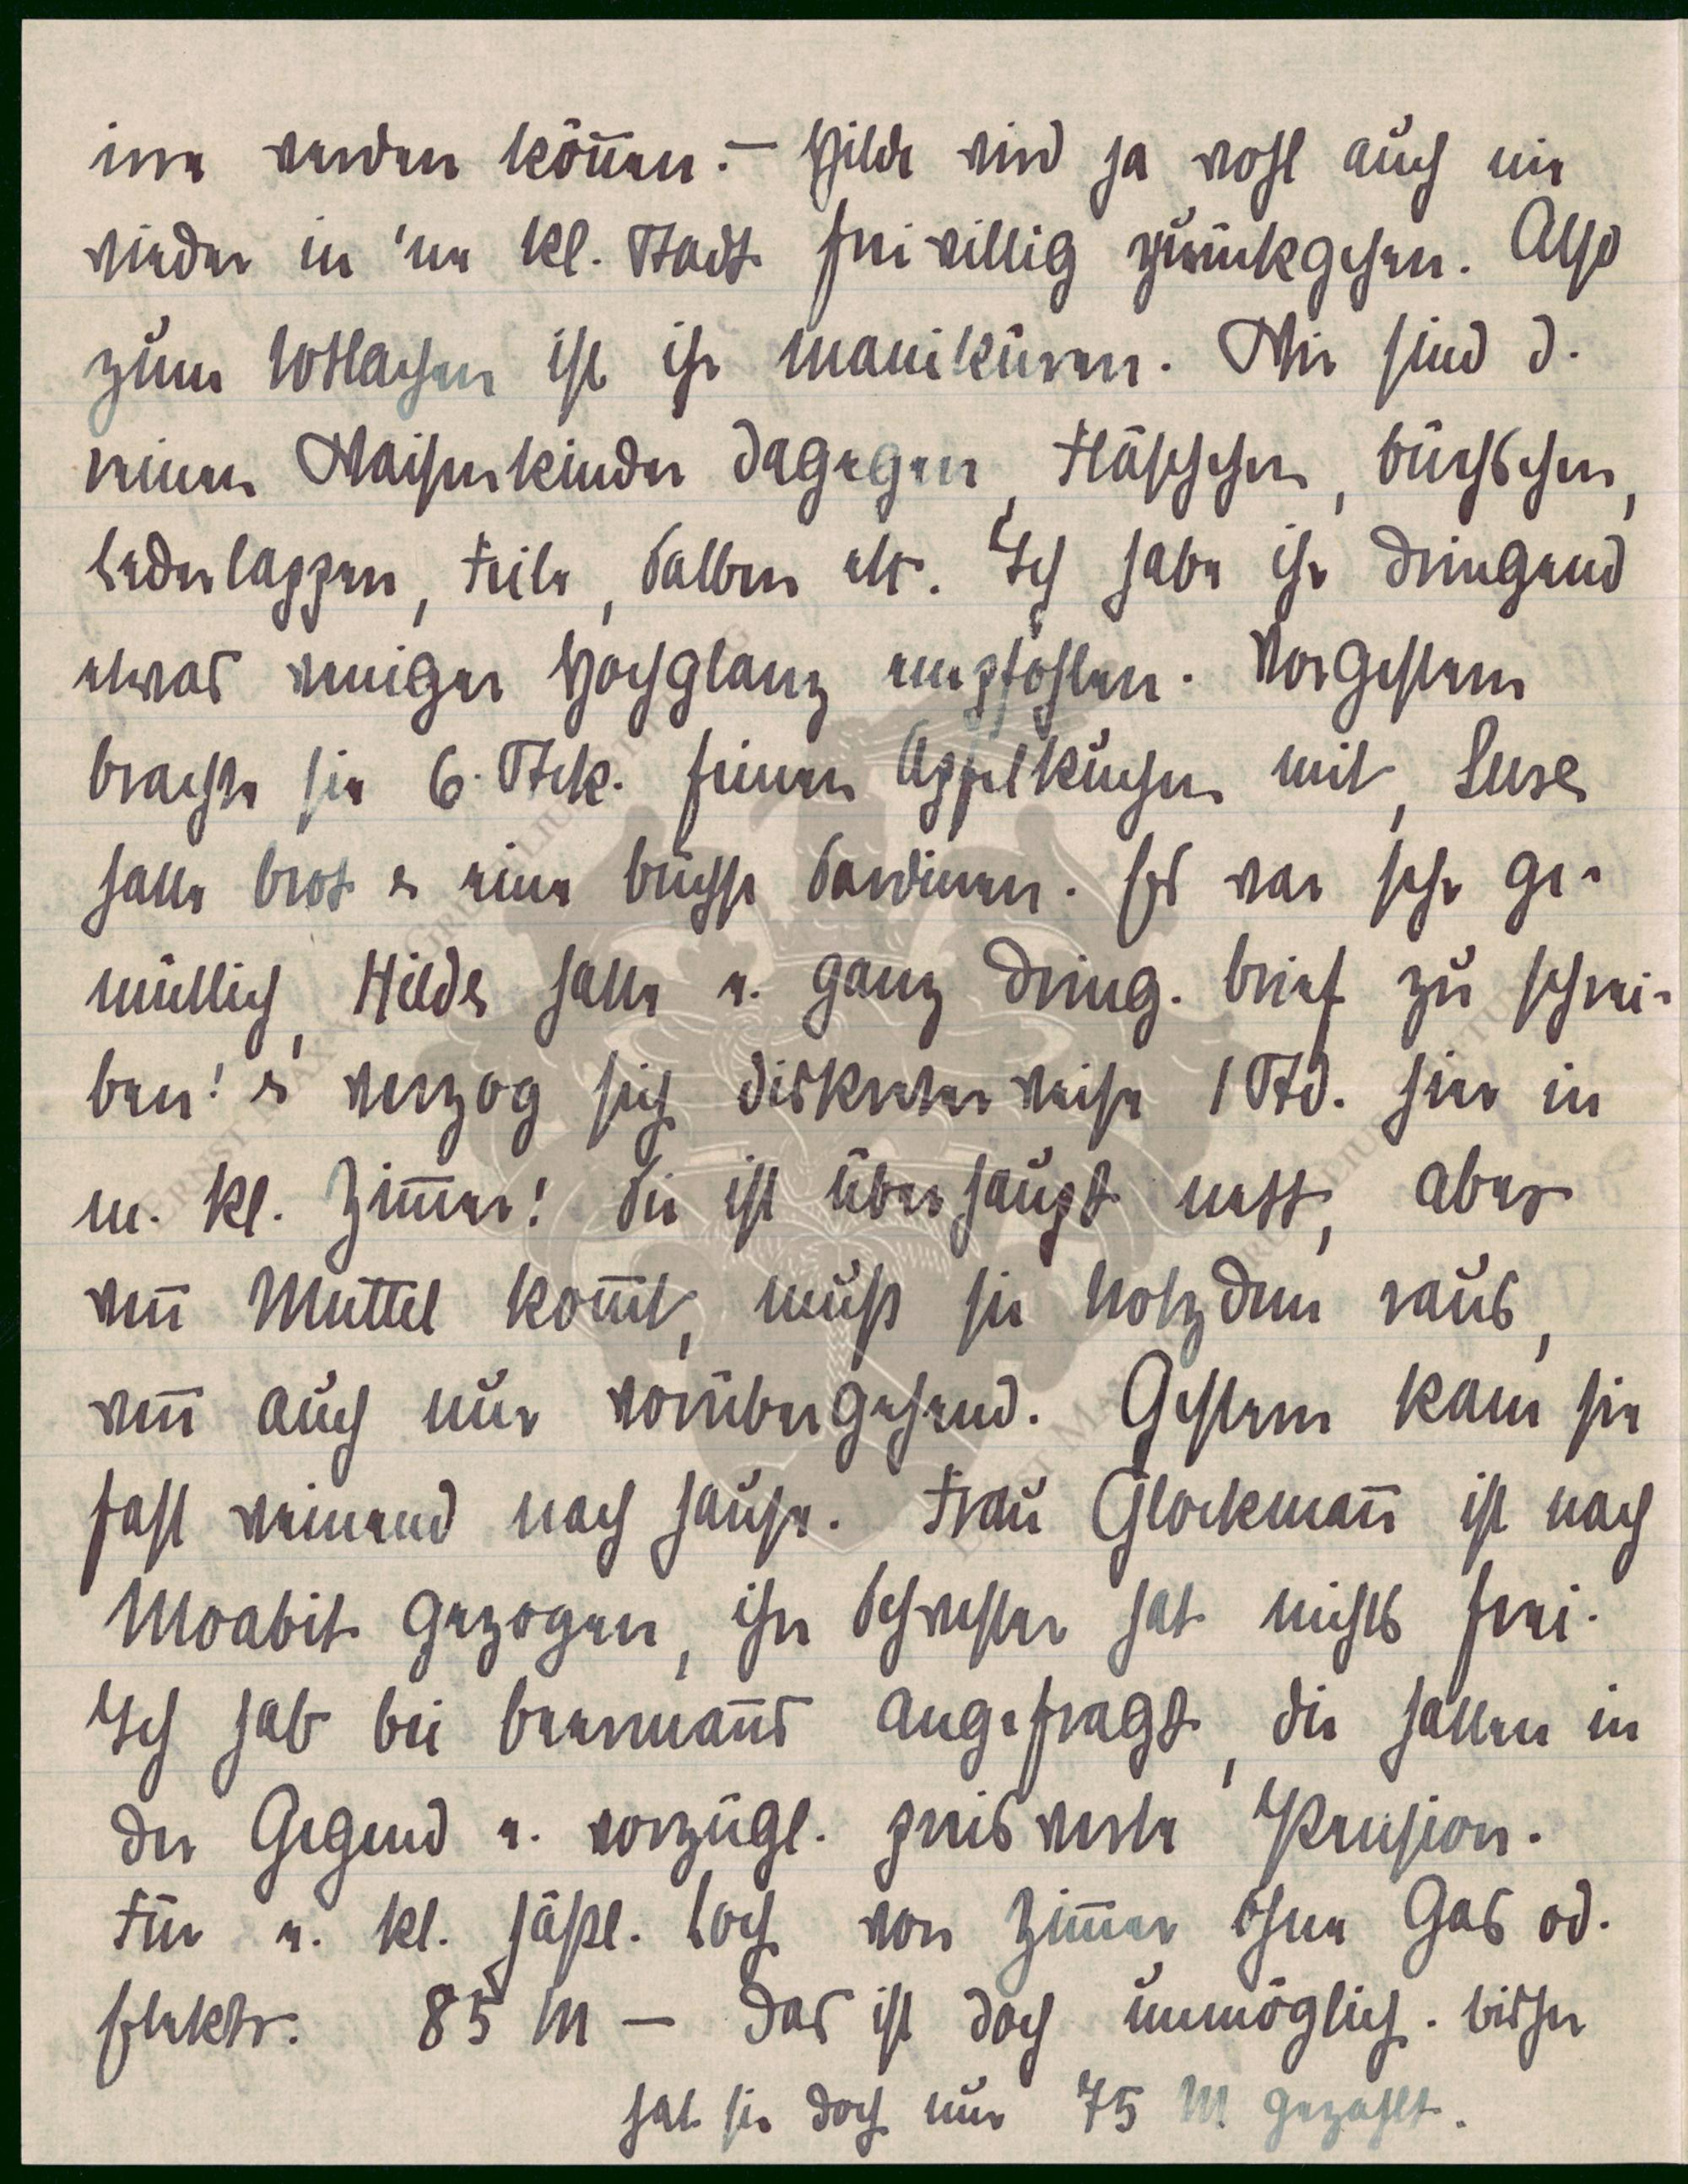 irre werden kön̄en. – Hilde wird ja wohl auch nie
wieder in 'ne kl. Stadt freiwillig zurückgehen. Also
zum totlachen ist ihr maniküren. Wir sind d.
reinen Waisenkinder dagegen, Fläschchen, Büchschen,
Lederlappen, Feile, Salben etc. Ich habe ihr dringend
etwas weniger Hochglanz empfohlen. Vorgestern
brachte sie 6 Stck. feinen Apfelkuchen mit, Luise
hatte Brot u. eine Büchse Sardinen. Es war sehr ge-
mütlich, Hilde hatte e. ganz dring. Brief zu schrei-
ben! u. verzog sich diskreterweise 1 Std. hier in
m. kl. Zim̄er! Sie ist überhaupt nett, aber
wen̄ Muttel kom̄t, muß sie trotzdem raus,
wen̄ auch nur vorübergehend. Gestern kam sie
fast weinend nach Hause. Frau Glockman̄ ist nach
Moabit gezogen, ihre Schwester hat nichts frei.
Ich hab bei Beerman̄s angefragt, die hatten in
der Gegend e. vorzügl. preiswerte Pension.
Für e. kl. häßl. Loch von Zim̄er ohne Gas od.
Elektr. 85 M – das ist doch unmöglich. Bisher
hat sie doch nur 75 M gezahlt.